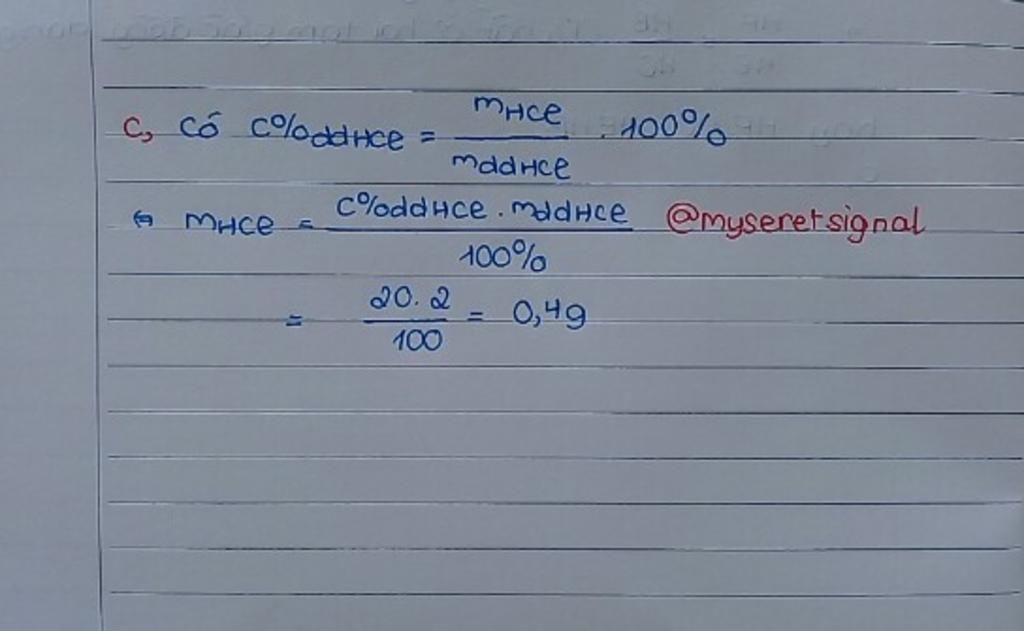 c, có C%ddHCl = mHCl / mddHCl . 100%
⇔ mHCl = C%ddHCl . mddHCl / 100% @myseretsignal
= 20.2 / 100 = 0,4g